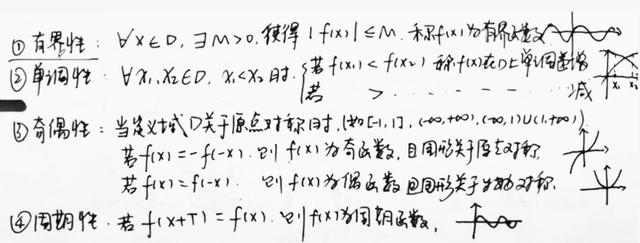 ① 有界性: ∀x∈D, ∃M>0, 使得 |f(x)|≤M. 称f(x)为有界函数
② 单调性: ∀x₁,x₂∈D, x₁<x₂时. { 若f(x₁)<f(x₂) 称f(x)在D上单调递增
若 > ........ 减
x₁ x₂
③ 奇偶性: 当定义域D关于原点对称时, (如[-1,1], (-∞,+∞), (-∞,-1)∪(1,+∞))
若f(x)=-f(-x). 则f(x)为奇函数, 且图形关于原点对称.
若f(x)=f(-x). 则f(x)为偶函数 且图形关于y轴对称.
④ 周期性. 若f(x+T)=f(x). 则f(x)为周期函数,